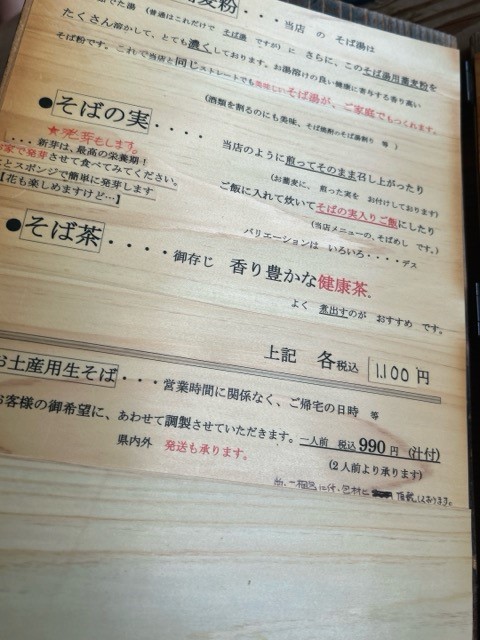 蕎麦粉・・・当店 の そば湯は
でた湯 (普通はこれだけで そば湯 ですが)に さらに、このそば湯用蕎麦粉を
たくさん溶かして、とても濃くしております。お湯溶けの良い健康に寄与する香り高い
そば粉です。これで当店と同じストレートでも美味しいそば湯が、ご家庭でもつくれます。
(酒類を割るのにも美味、そば焼酎のそば湯割り 等 )
●そばの実・・・・
当店のように煎ってそのまま召し上がったり
(お蕎麦に、煎った実を お付けしております)
ご飯に入れて炊いてそばの実入りご飯にしたり
(当店メニューの、そばめし です。)
バリエーションは いろいろ・・・・デス
★発芽もします。
・・・新芽は、最高の栄養期!
家で発芽させて食べてみてください。
とスポンジで簡単に発芽します
【花も楽しめますけど…】
●そば茶・・・・御存じ 香り豊かな健康茶.
よく 煮出すのが おすすめ です。
上記 各税込 1,100円
お土産用生そば・・・営業時間に関係なく、ご帰宅の日時 等
お客様の御希望に、あわせて調製させていただきます。一人前 税込990円 (汁付)
(2人前より承ります)
県内外 発送も承ります。
一梱包に付、包材と 頂戴しております。